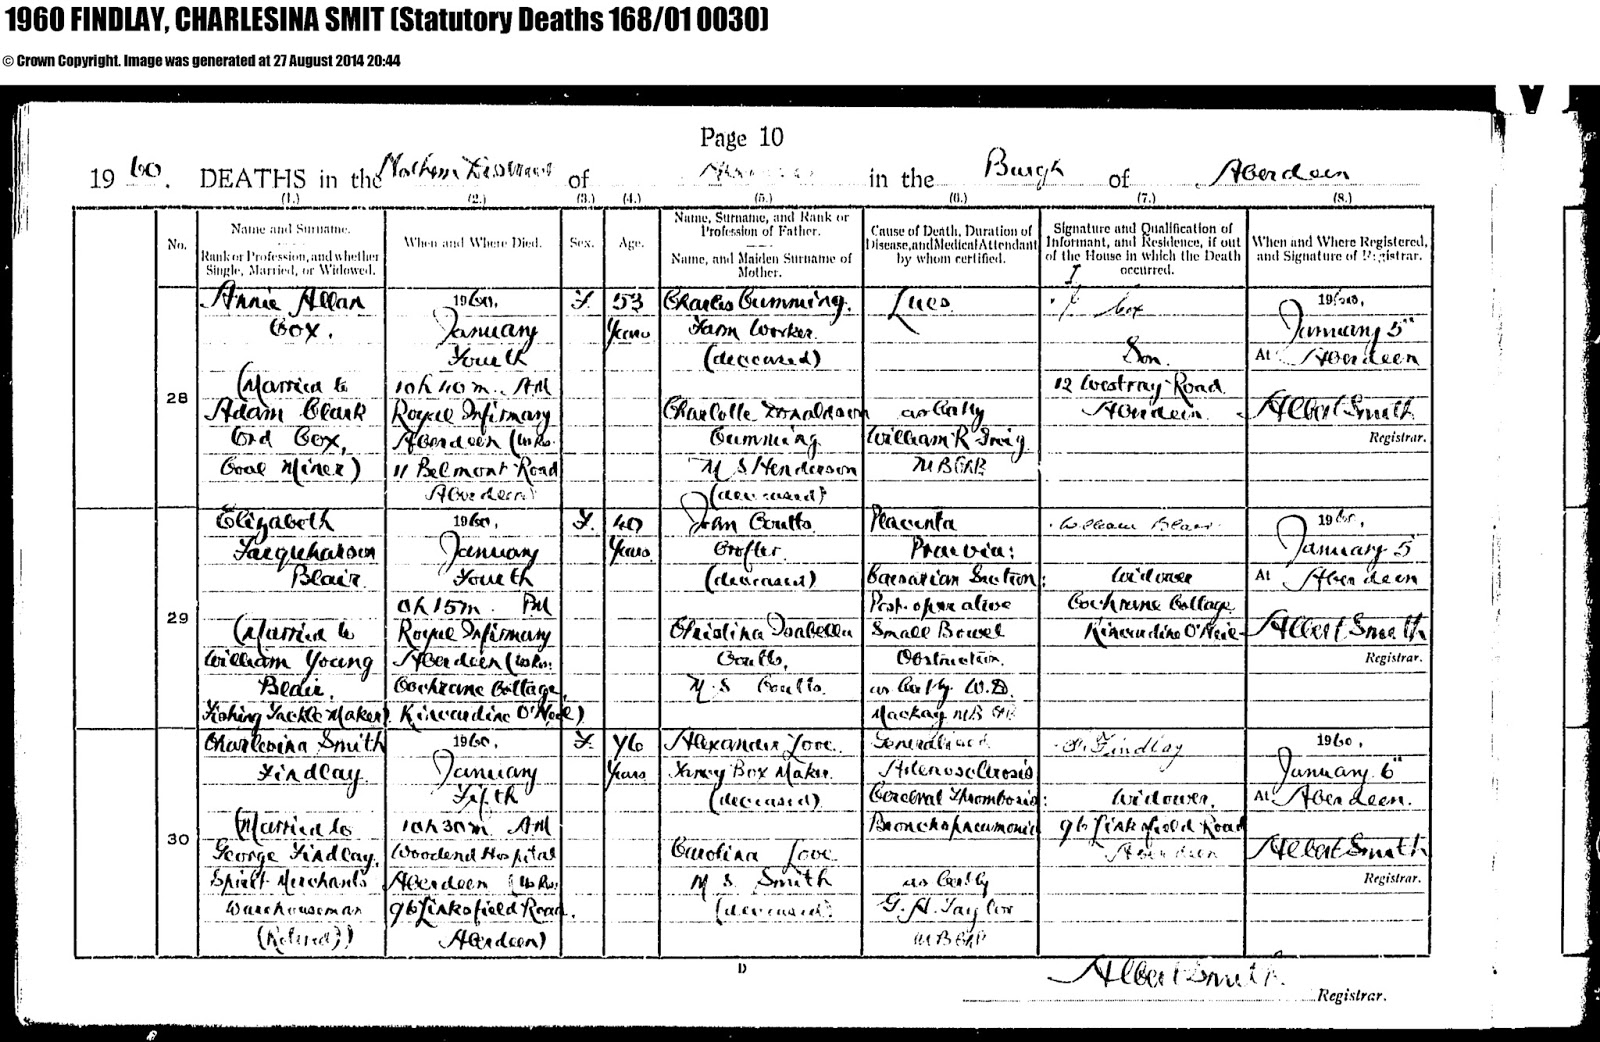 1960 FINDLAY, CHARLESINA SMIT (Statutory Deaths 168/01 0030)
© Crown Copyright. Image was generated at 27 August 2014 20:44
Page 10
1960. DEATHS in the Northern District of in the Burgh of Aberdeen
(1.) (2.) (3.) (4.) (5.) (6.) (7.) (8.)
No.
Name and Surname.
Rank or Profession, and whether
Single, Married, or Widowed.
When and Where Died.
Sex.
Age.
Name, Surname, and Rank or
Profession of Father.
Name, and Maiden Surname of
Mother.
Cause of Death, Duration of
Disease, and Medical Attendant
by whom certified.
Signature and Qualification of
Informant, and Residence, if out
of the House in which the Death
occurred.
When and Where Registered,
and Signature of Registrar.
28
Annie Allan
Cox.
(Married to
Adam Clark
Ord Cox,
Coal Miner)
1960,
January
Fourth
10h 40m. AM
Royal Infirmary
Aberdeen (Us Res:
11 Belmont Road
Aberdeen)
F.
53
Years
Charles Cumming.
Farm Worker.
(deceased)
Charlotte Donaldson
Cumming
M S Henderson
(deceased)
Lues
as Cert by
William R
M B Ch B
Cox
Son.
12 Westray Road
Aberdeen.
1960,
January 5"
At Aberdeen
Albert Smith
Registrar.
29
Elizabeth
Farquharson
Blair.
(Married to
William Young
Blair,
Fishing Tackle Maker)
1960,
January
Fourth
0h 15m. PM
Royal Infirmary
Aberdeen (Us Res:
Cochrane Cottage,
Kincardine O'Neil)
F.
40
Years.
John Coutts
Crofter.
(deceased)
Christina Isabella
Coutts,
M. S Coutts.
Placenta
Praevia:
Caesarian Section:
Post-operative
Small Bowel
Obstruction.
as Cert by. W.D.
Mackay M B Ch B
William Blair
Widower
Cochrane Cottage
Kincardine O'Neil
1960,
January 5
At Aberdeen
Albert Smith
Registrar.
30
Charlesina Smith
Findlay.
(Married to
George Findlay,
Spirit Merchants
Warehouseman
(Retired))
1960,
January
Fifth
10h 30m. AM
Woodend Hospital
Aberdeen (Us Res:
96 Linksfield Road,
Aberdeen)
F.
76
Years
Alexander Love.
Fancy Box Maker.
(deceased)
Carolina Love
M S. Smith
(deceased)
Generalised
Arteriosclerosis
Cerebral Thrombosis:
Bronchopneumonia
as Cert by
G. A. Taylor
M B Ch B
G. Findlay
Widower.
96 Linksfield Road
Aberdeen
1960,
January 6"
At Aberdeen.
Albert Smith
Registrar.
D
Albert Smith.
Registrar.